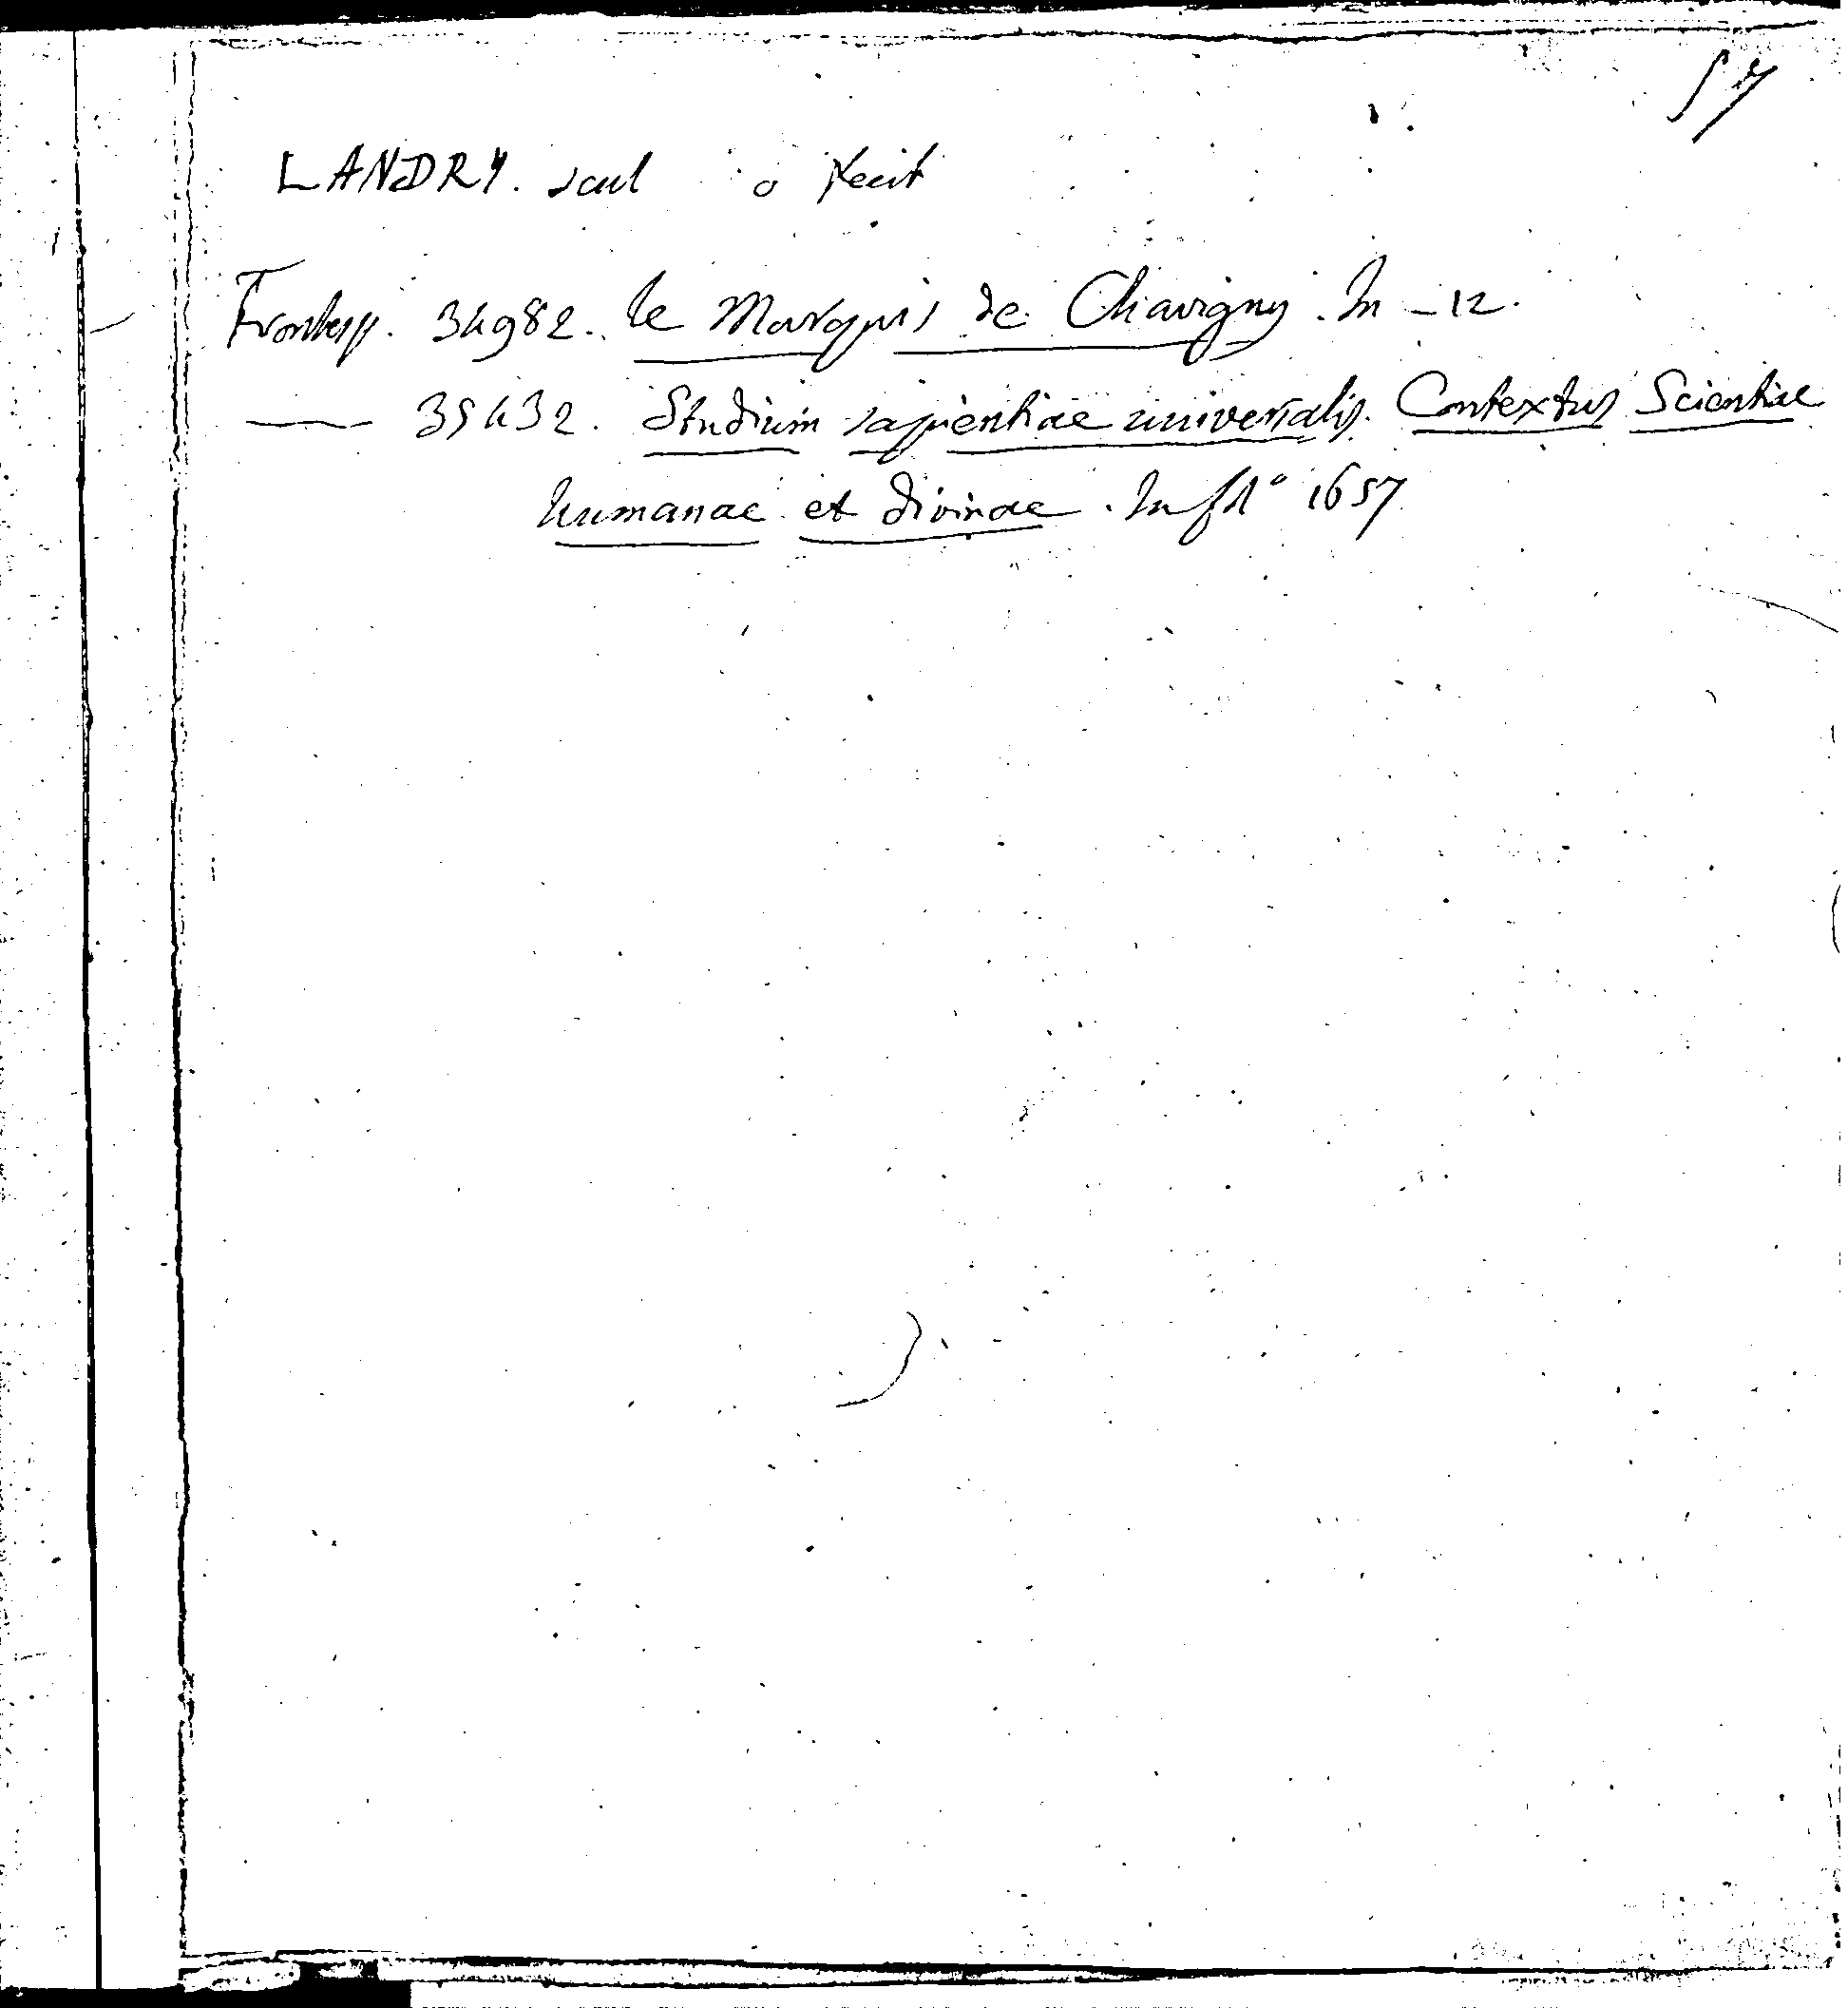 57
LANDRY. scul o fecit
Frontesp. 34982. le Marquis de Chavigny. In-12.
—— 35432. Studium sapientiae universalis. Contextus Scientiae
humanae et divinae. In fol° 1657